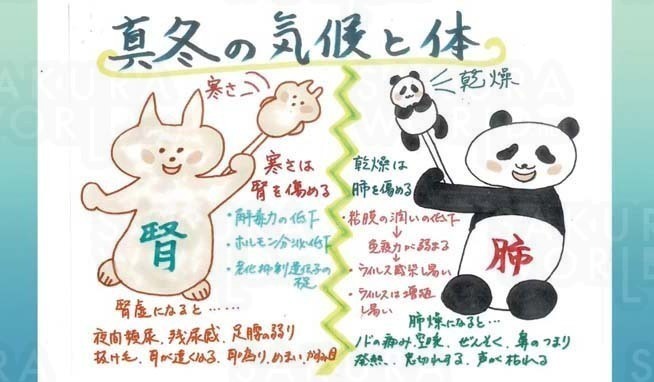 真冬の気候と体
寒さ
寒さは
腎を傷める
・解毒力の低下
・ホルモン分泌低下
・老化抑制遺伝子の
不足
腎
腎虚になると……
夜間頻尿、残尿感、足腰の弱り
抜け毛、耳が遠くなる、耳鳴り、めまい、
乾燥
乾燥は
肺を傷める
・粘膜の潤いの低下
↓
免疫力が弱まる
↓
→ウイルス感染し易い
・ウイルスは増殖
し易い
肺
肺燥になると…
ノドの痛み、空咳、ぜんそく、鼻のつまり
発熱、息切れする、声が枯れる
SAKURA
WORLD